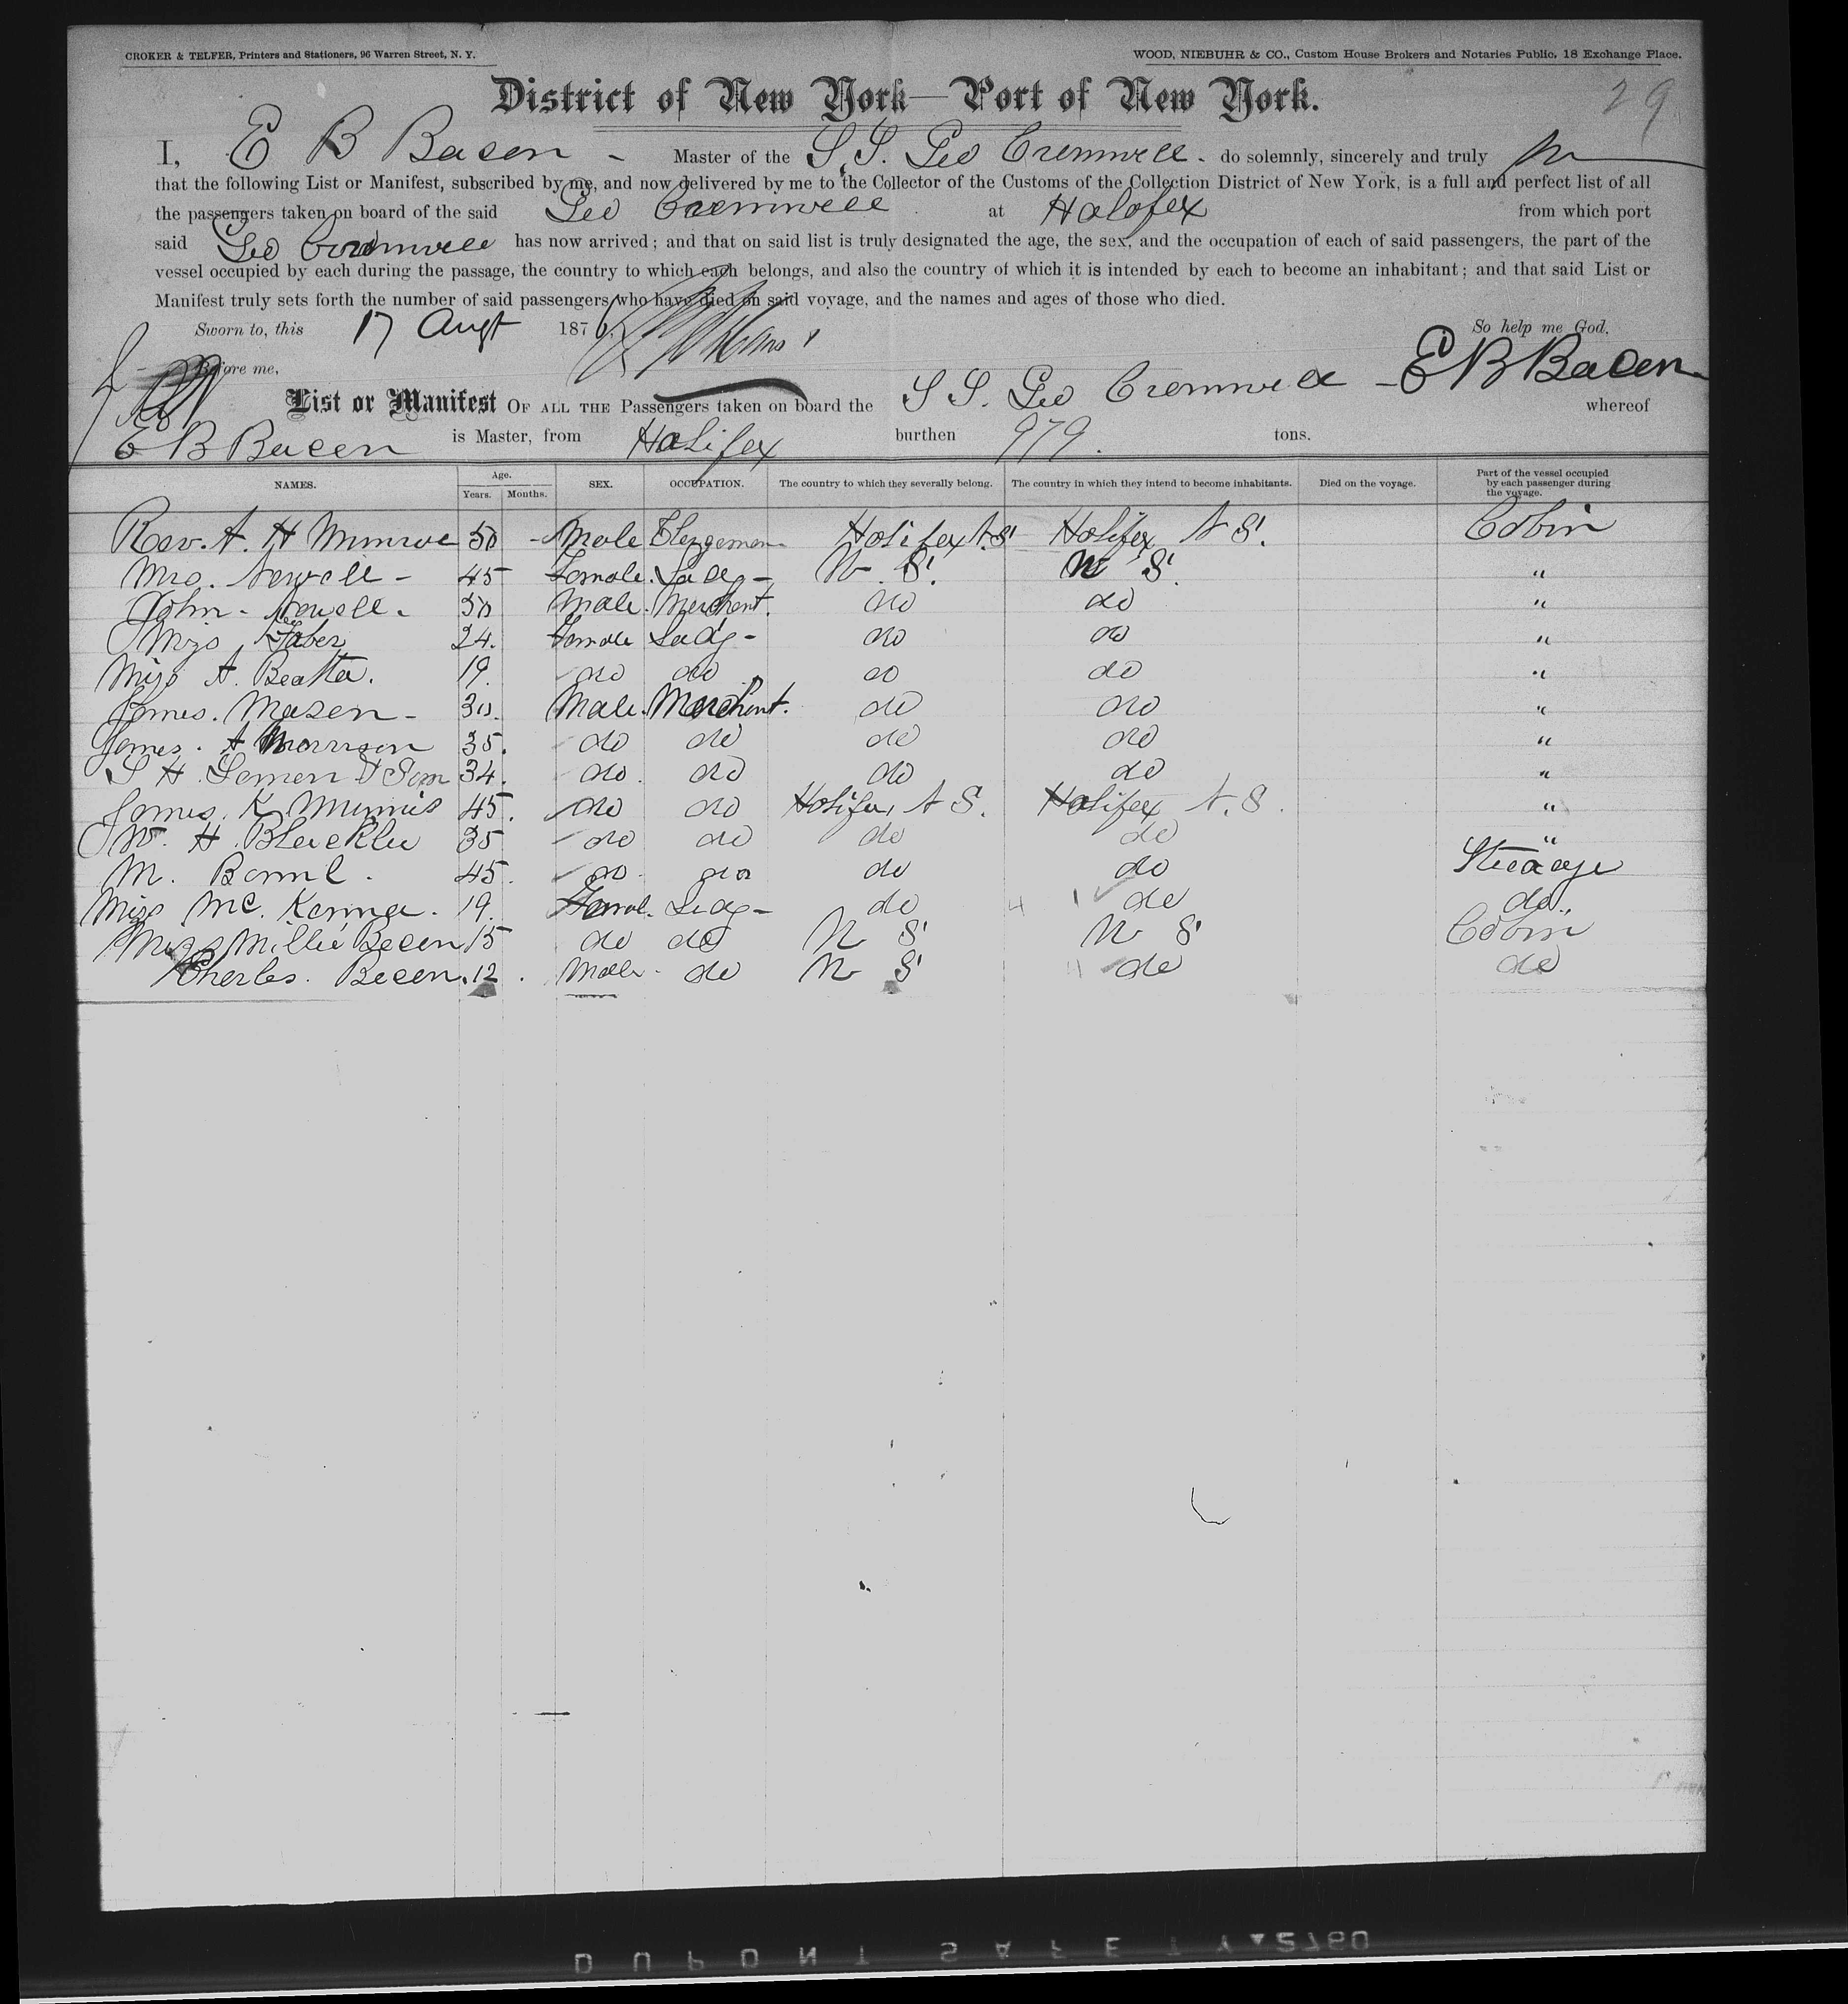 CROKER & TELFER, Printers and Stationers, 96 Warren Street, N. Y. WOOD, NIEBUHR & CO., Custom House Brokers and Notaries Public, 18 Exchange Place.
District of New York—Port of New York. 29
I, E B Bacon - Master of the S. S. Geo Cromwell - do solemnly, sincerely and truly
that the following List or Manifest, subscribed by me, and now delivered by me to the Collector of the Customs of the Collection District of New York, is a full and perfect list of all
the passengers taken on board of the said Geo Cromwell at Halofex from which port
said Geo Cromwell has now arrived; and that on said list is truly designated the age, the sex, and the occupation of each of said passengers, the part of the
vessel occupied by each during the passage, the country to which each belongs, and also the country of which it is intended by each to become an inhabitant; and that said List or
Manifest truly sets forth the number of said passengers who have died on said voyage, and the names and ages of those who died.
Sworn to, this 17 Augt 1876. So help me God.
Before me, E B Bacon
List or Manifest OF ALL THE Passengers taken on board the S S. Geo Cromwell whereof
E B Bacon is Master, from Halifex burthen 979. tons.
NAMES. Age. Years. Months. SEX. OCCUPATION. The country to which they severally belong. The country in which they intend to become inhabitants. Died on the voyage. Part of the vessel occupied by each passenger during the voyage.
Rev. A. H Munroe 50 - Male Clergeman Halifex N.S Halifex N S. Cabin
Mrs. Newell - 45 Female. Lady - N. S. N S. "
John - Newell. 50 Male. Merchant. do do "
Miss Faber 24. Female Lady - do do "
Miss A. Beatta. 19. do do do do "
James. Mason - 30. Male. Merchant. do do "
James. A Morrison 35. do do do do "
S H. & Son 34. do. do do do "
James. K 45. do do Halifex, N S. Halifex N. S. "
W. H. 35 do do do do "
M. 45. do. do do do Steeage
Miss Mc. Kenna. 19. Femal. Lady - do 4 1 do do.
Miss Millie Bacon 15 do do N S N S Cabin
Charles. Bacon. 12. Male - do N S do do
DUPONT SAFETY 2760